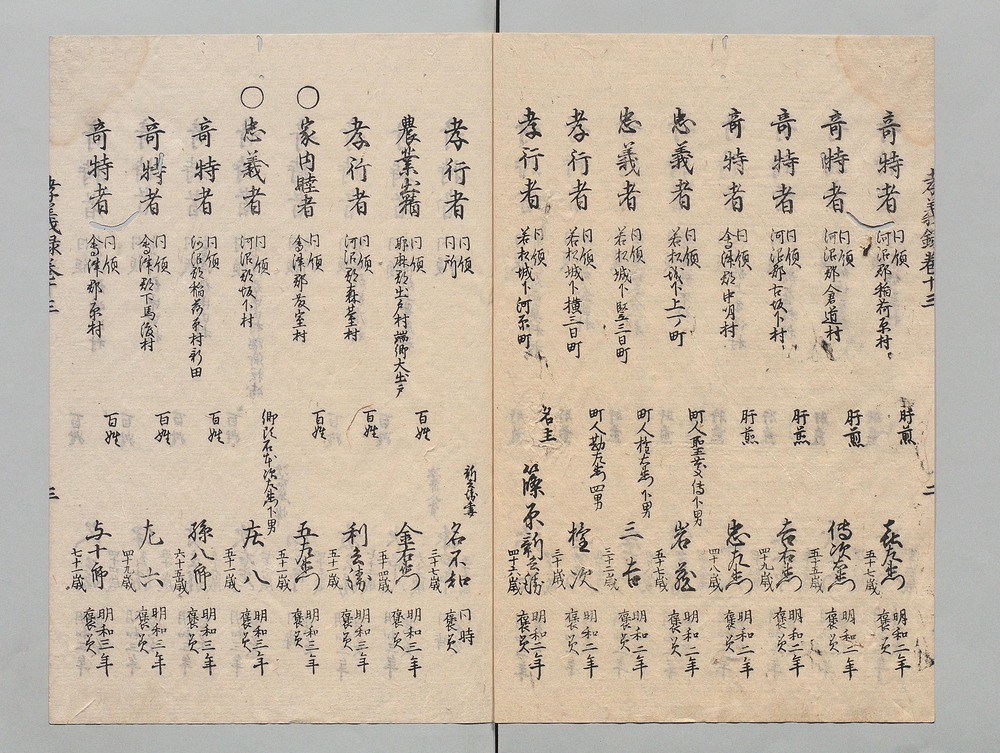 孝義録巻十三
二
竒特者 同領 河沼郡稲荷原村 肝煎 五十七歳 明和二年 褒美
竒特者 同領 河沼郡倉道村 肝煎 傳次右衛門 五十五歳 明和二年 褒美
竒特者 同領 河沼郡古坂下村 肝煎 吉右衛門 四十九歳 明和二年 褒美
竒特者 同領 会津郡中明村 肝煎 忠左衛門 四十八歳 明和二年 褒美
忠義者 同領 若松城下上一丁町 下男 岩蔵 五十七歳 明和二年 褒美
忠義者 同領 若松城下竪三日町 下男 三吉 三十二歳 明和二年 褒美
孝行者 同領 若松城下横三日町 町人勘左衛門四男 権次 三十歳 明和二年 褒美
孝行者 同領 若松城下河原町 名主 篠原新兵衛 四十六歳 明和二年 褒美
孝行者 同領 同所 新兵衛妻 名不知 三十七歳 同時 褒美
農業出精 同領 耶麻郡出戸村端郷大出戸 百姓 金右衛門 五十四歳 明和三年 褒美
孝行者 同領 河沼郡森台村 百姓 利兵衛 五十一歳 明和三年 褒美
○家内睦者 同領 会津郡 百姓 五左衛門 五十一歳 明和三年 褒美
○忠義者 同領 河沼郡坂下村 下男 庄八 五十一歳 明和三年 褒美
竒特者 同領 河沼郡稲荷原村新田 百姓 孫八郎 六十五歳 明和三年 褒美
竒特者 同領 会津郡下馬渡村 百姓 六 四十九歳 明和三年 褒美
竒特者 同領 会津郡原村 百姓 与十郎 七十一歳 明和三年 褒美
孝義録巻十三
三